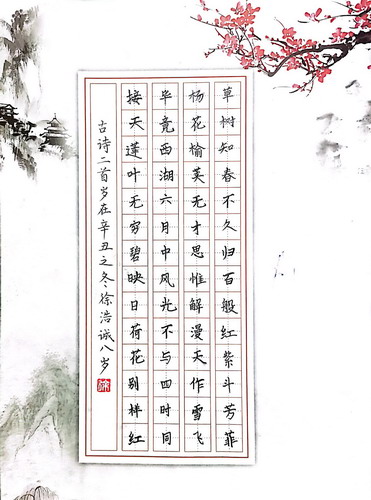 草树知春不久归百般红紫斗芳菲
杨花榆荚无才思惟解漫天作雪飞
毕竟西湖六月中风光不与四时同
接天莲叶无穷碧映日荷花别样红
古诗二首岁在辛丑之冬徐浩诚八岁